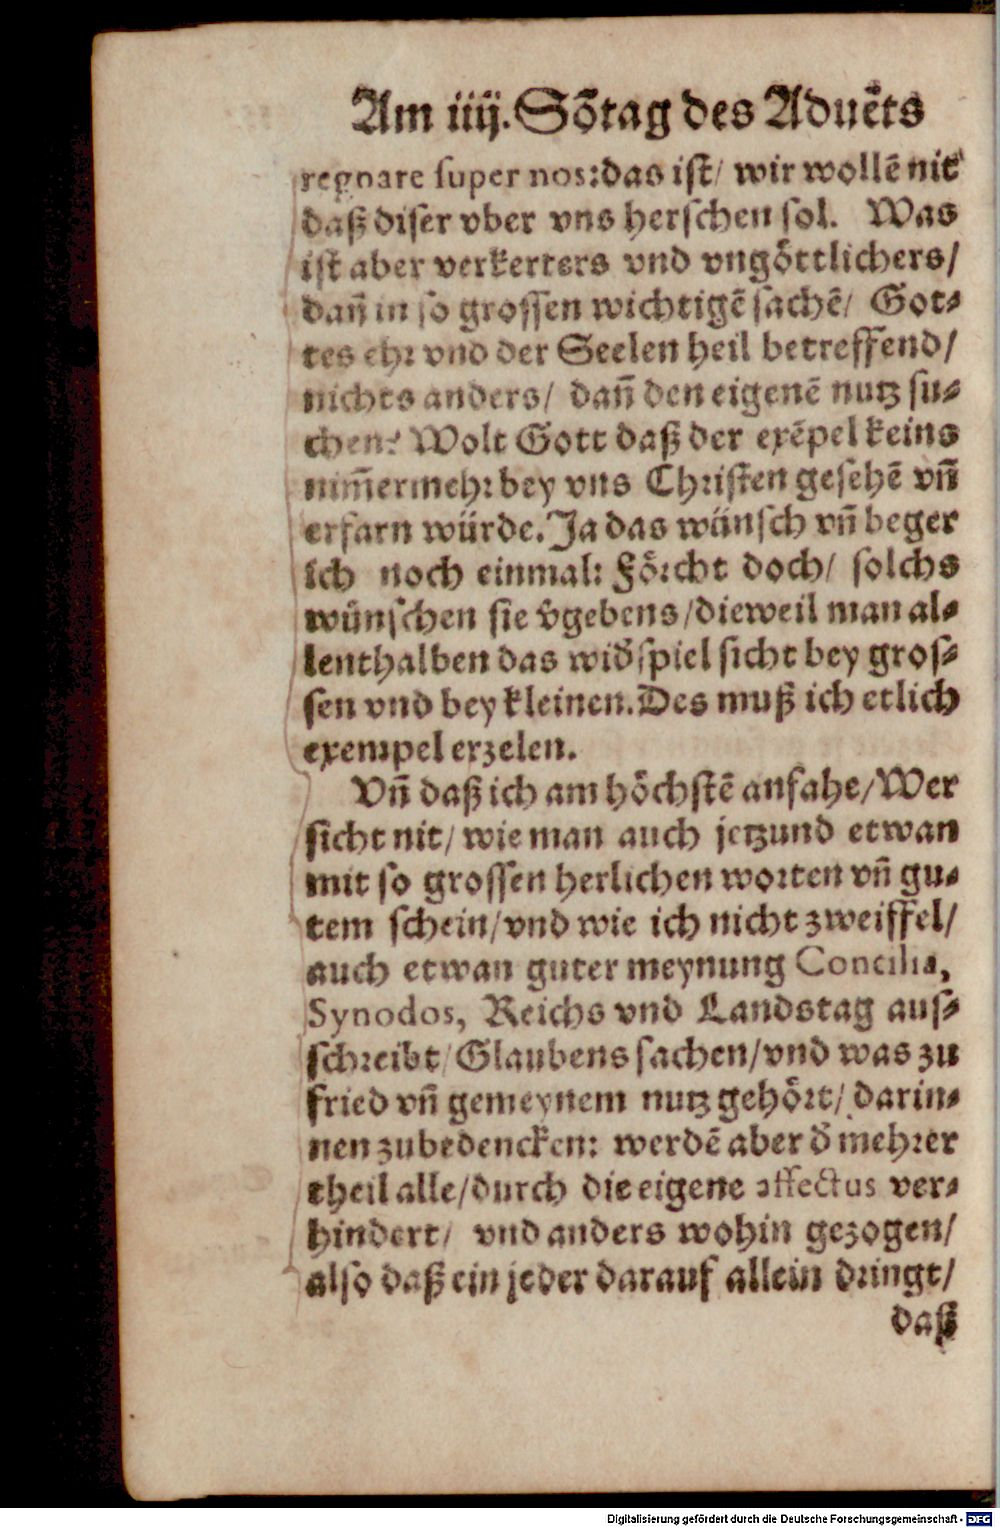 Am iiij. Sõtag des Aduẽts
regnare super nos: das ist/ wir wollẽ nit
daß diser vber vns herschen sol. Was
ist aber verkerters vnd vngöttlichers/
dañ in so grossen wichtigẽ sachẽ/ Got⸗
tes ehr vnd der Seelen heil betreffend/
nichts anders/ dañ den eigenẽ nutz su⸗
chen? Wolt Gott daß der exẽpel keins
nim̃ermehr bey vns Christen gesehẽ vñ
erfarn würde. Ja das wünsch vñ beger
ich noch einmal: Förcht doch/ solchs
wünschen sie v̈gebens/ dieweil man al⸗
lenthalben das wid̕spiel sicht bey gros⸗
sen vnd bey kleinen. Des muß ich etlich
exempel erzelen.
Vñ daß ich am höchstẽ anfahe/ Wer
sicht nit/ wie man auch jetzund etwan
mit so grossen herlichen worten vñ gu⸗
tem schein/ vnd wie ich nicht zweiffel/
auch etwan guter meynung Concilia,
Synodos, Reichs vnd Landstag aus⸗
schreibt/ Glaubens sachen/ vnd was zu
fried vñ gemeynem nutz gehört/ darin⸗
nen zubedencken: werdẽ aber d̕ mehrer
theil alle/ durch die eigene affectus ver⸗
hindert/ vnd anders wohin gezogen/
also daß ein jeder darauf allein dringt/
daß
Digitalisierung gefördert durch die Deutsche Forschungsgemeinschaft - DFG